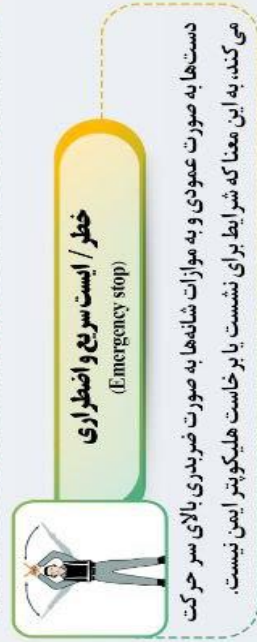 خطر / ایست سریع و اضطراری
(Emergency stop)
دست‌ها به صورت عمودی و به موازات شانه‌ها به صورت ضربدری بالای سر حرکت
می‌کند، به این معنا که شرایط برای نشست یا برخاست هلیکوپتر ایمن نیست.